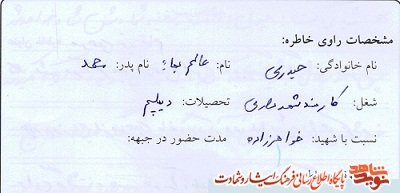 مشخصات راوی خاطره:
نام خانوادگی: حیدری نام: عالم نجات نام پدر: محمد
شغل: کارمند شهرداری تحصیلات: دیپلم
نسبت با شهید: خواهرزاده مدت حضور در جبهه:
نوید شاهد پایگاه اطلاع رسانی فرهنگ ایثار و شهادت